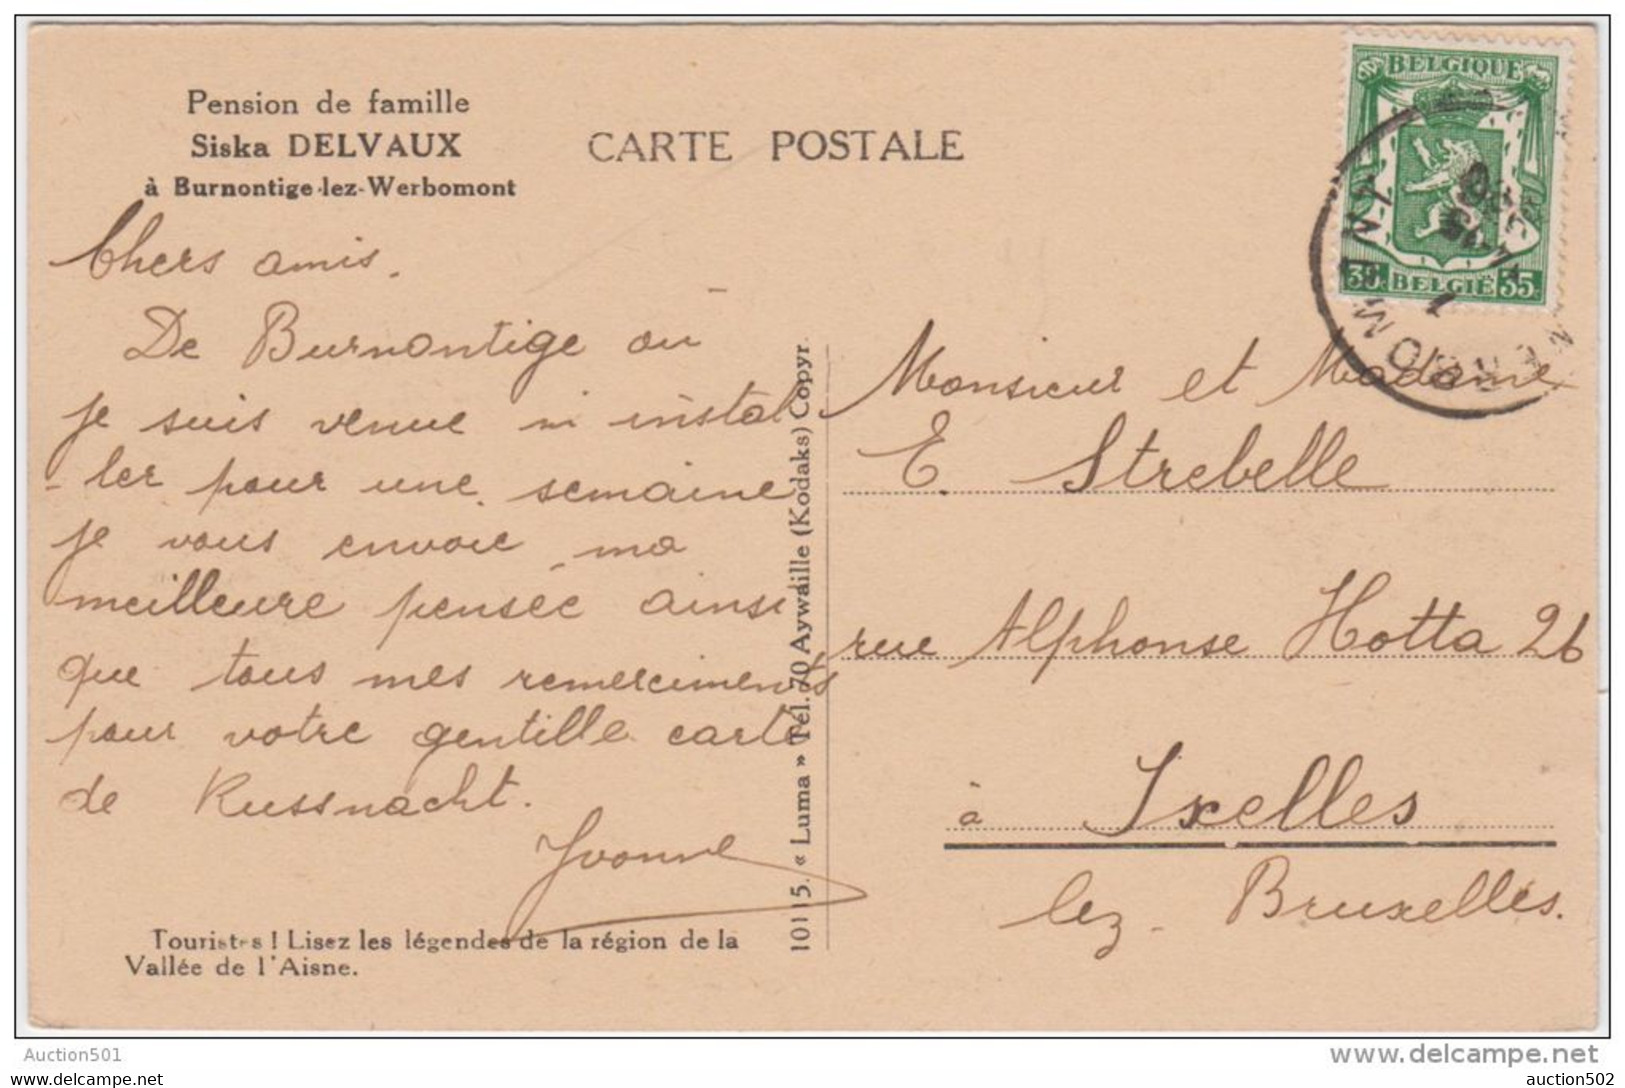 Pension de famille
Siska DELVAUX
à Burnontige-lez-Werbomont
CARTE POSTALE
BELGIQUE
35 BELGIË 35
Chers amis.
De Burnontige où
je suis venue m'instal
-ler pour une semaine
je vous envoie ma
meilleure pensée ainsi
que tous mes remerciments
pour votre gentille carte
de Kussnacht.
Yvonne
Touristes ! Lisez les légendes de la région de la
Vallée de l'Aisne.
10115. « Luma » Tél. 70 Aywaille (Kodaks) Copyr.
Monsieur et Madame
E. Strebelle
rue Alphonse Hotta 26
à Ixelles
lez-Bruxelles.
Auction501
www.delcampe.net
auction501
auction502